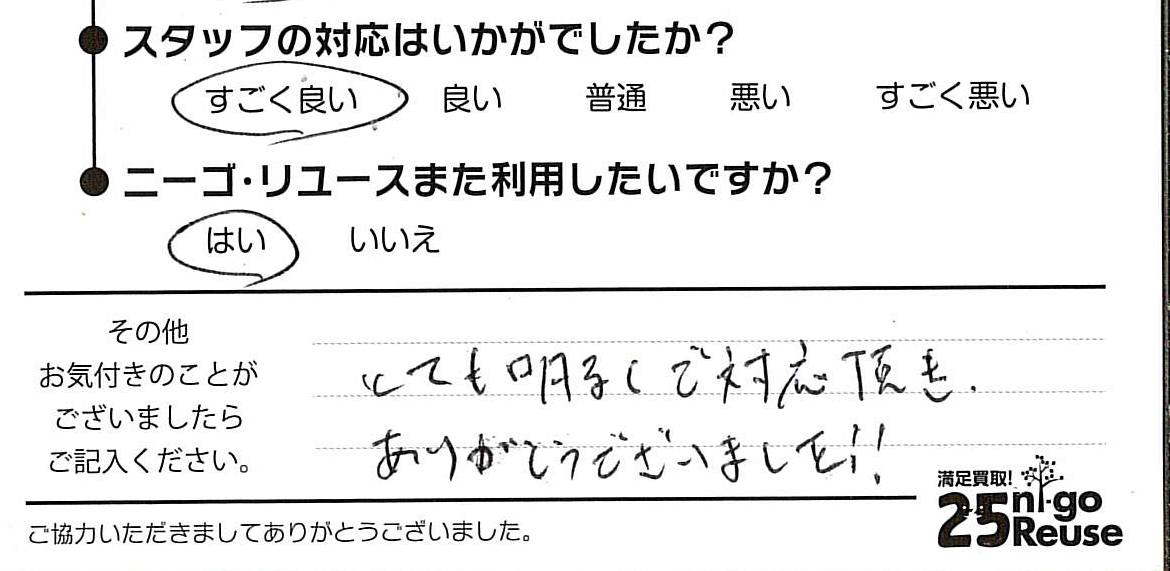 スタッフの対応はいかがでしたか？
すごく良い 良い 普通 悪い すごく悪い
ニーゴ・リユースまた利用したいですか？
はい いいえ
その他
お気付きのことが
ございましたら
ご記入ください。
とても明るくご対応頂き、
ありがとうございました!!
満足買取!
25 ni-go
Reuse
ご協力いただきましてありがとうございました。